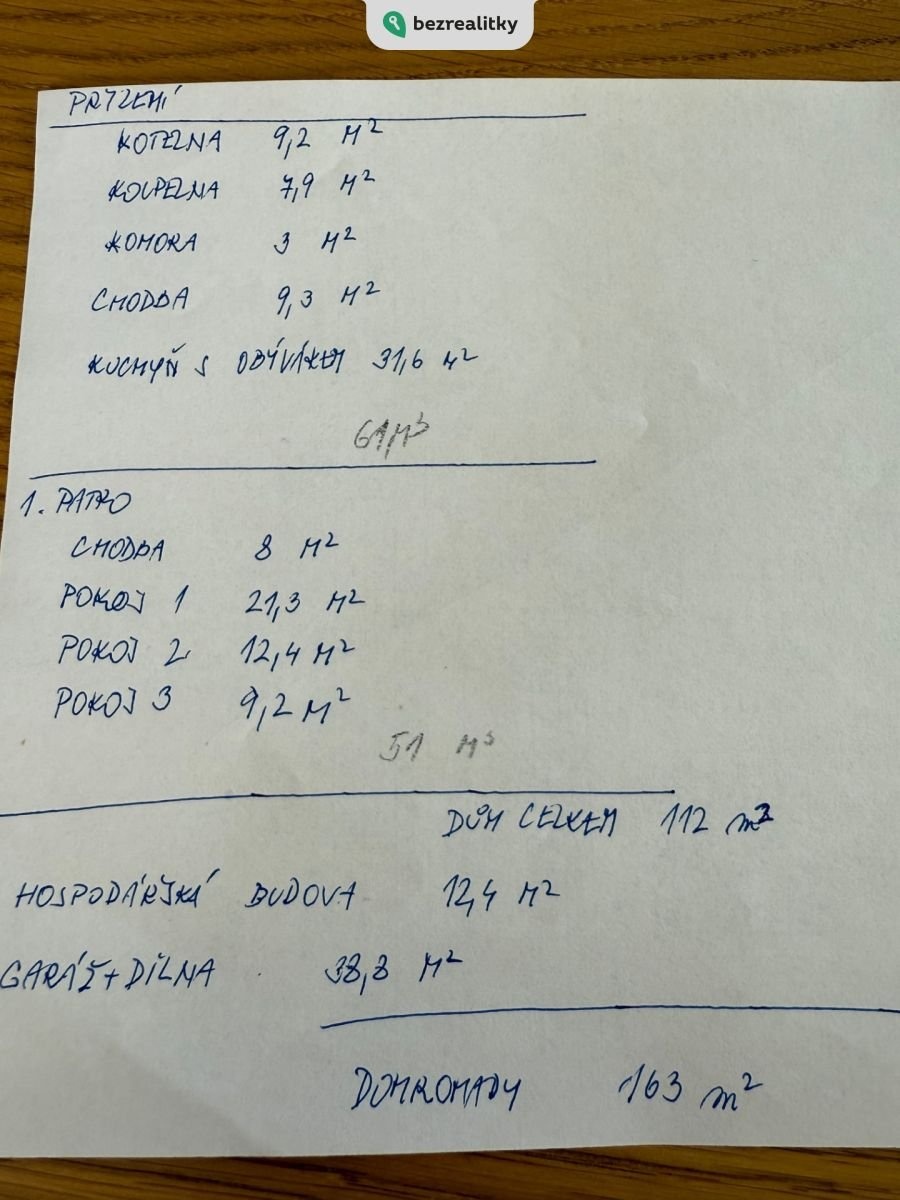 bezrealitky
PŘÍZEMÍ
KOTELNA 9,2 M²
KOUPELNA 7,9 M²
KOMORA 3 M²
CHODBA 9,3 M²
KUCHYŇ S OBÝVÁKEM 31,6 M²
61 M³
1. PATRO
CHODBA 8 M²
POKOJ 1 21,3 M²
POKOJ 2 12,4 M²
POKOJ 3 9,2 M²
51 M³
DŮM CELKEM 112 m²
HOSPODÁŘSKÁ BUDOVA 12,4 M²
GARÁŽ + DÍLNA 38,8 M²
DOHROMADY 163 m²